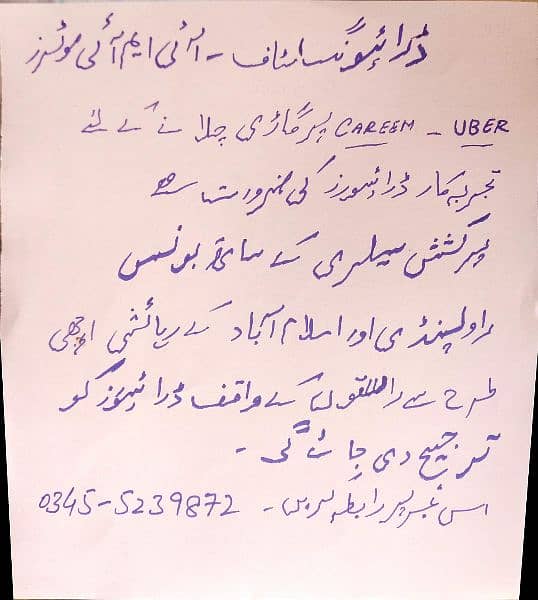 ڈرائیونگ سٹاف - آئی ایم آئی موٹرز
UBER - CAREEM پر گاڑی چلانے کے لئے
تجربہ کار ڈرائیورز کی ضرورت ہے
پرکشش سیلری کے ساتھ بونس
راولپنڈی اور اسلام آباد کے رہائشی اچھی
طرح سے راستوں کے واقف ڈرائیورز کو
ترجیح دی جائے گی -
اس نمبر پر رابطہ کریں - 0345-5239872